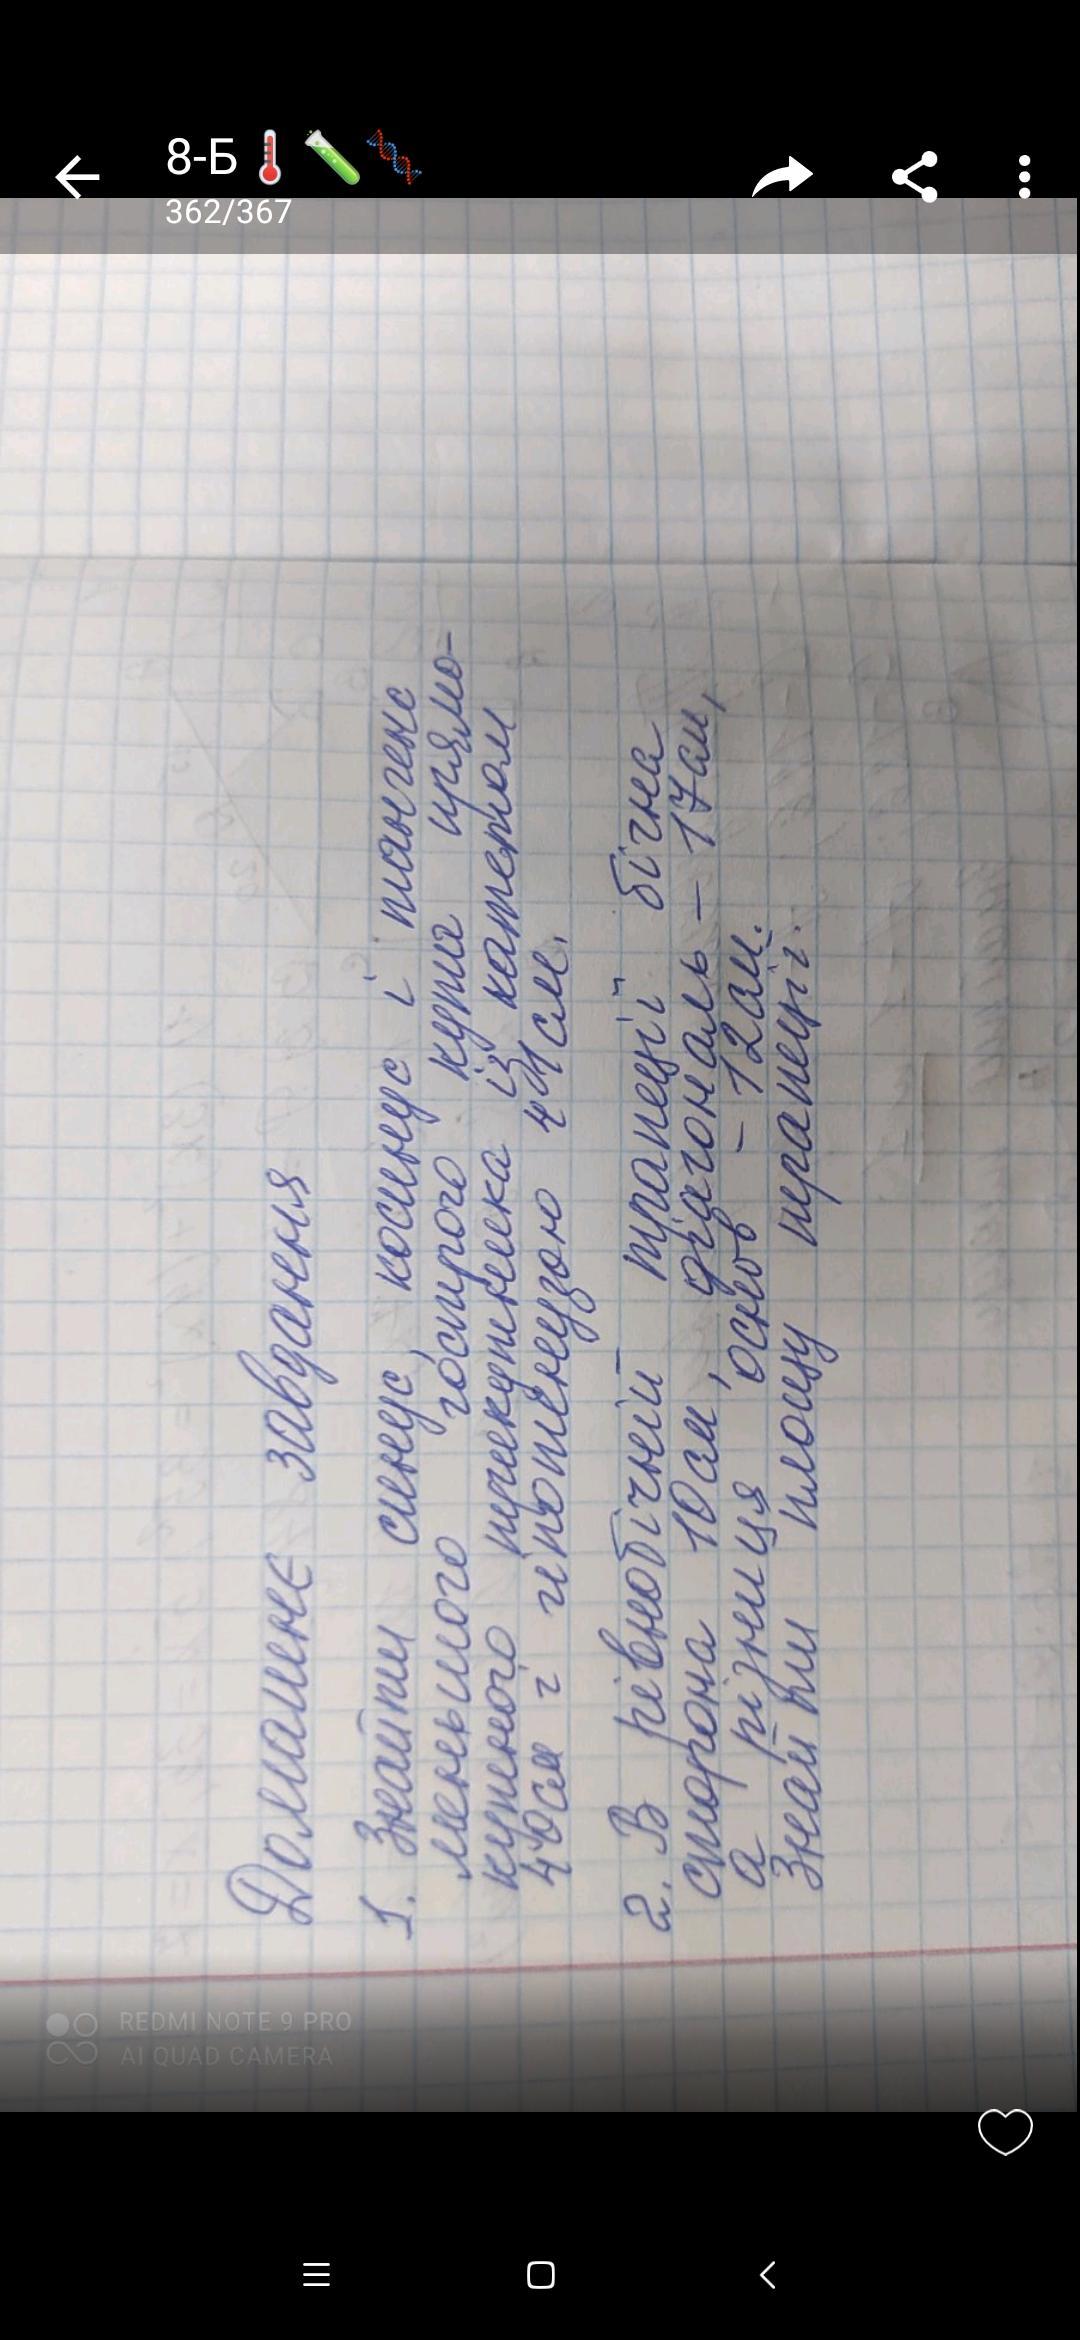 8-Б🌡️🧪🧬
362/367
Домашнє завдання
1. Знайти синус, косинус і тангенс
меньшого гострого кута прямо-
кутного трикутника із катетом
40см і гіпотенузою 41см.
2. В рівнобічній трапеції бічна
сторона 10см, діагональ – 17см,
а різниця основ – 12см.
Знайти площу трапеції.
REDMI NOTE 9 PRO
AI QUAD CAMERA